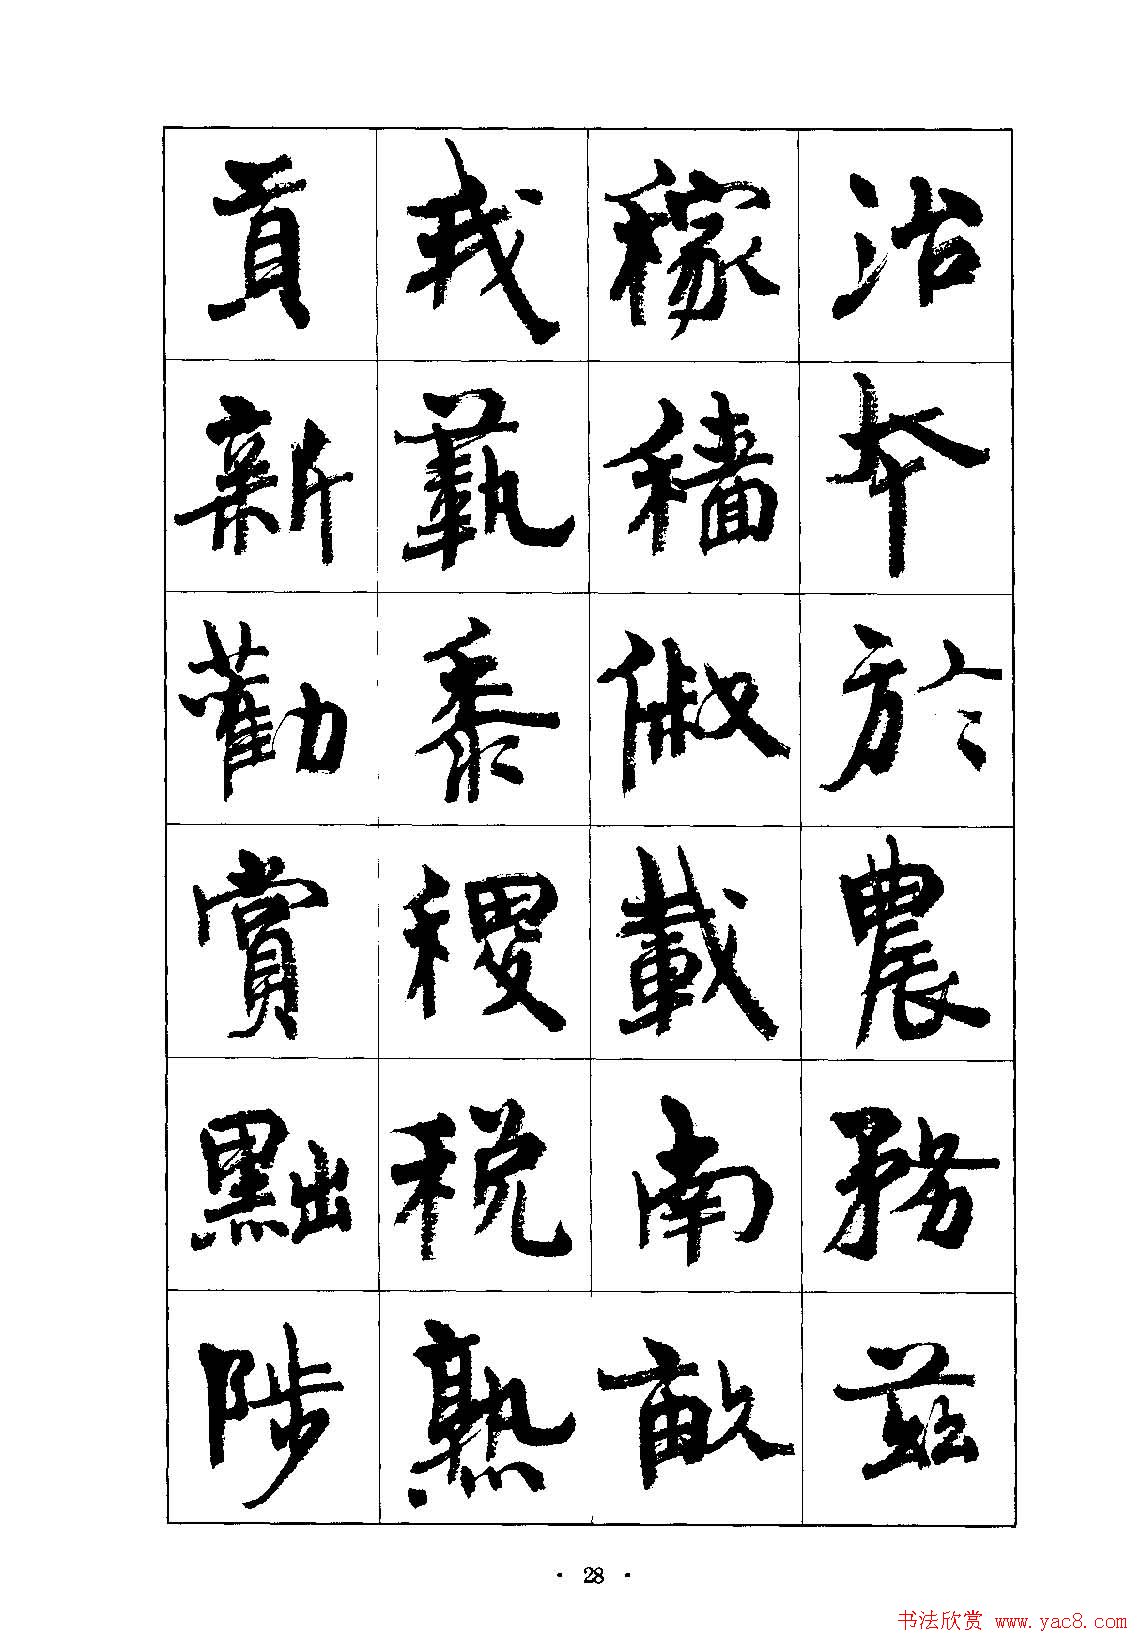 治本於農務茲
稼穡俶載南畝
我藝黍稷稅熟
貢新勸賞黜陟
· 28 ·
书法欣赏 www.yac8.com